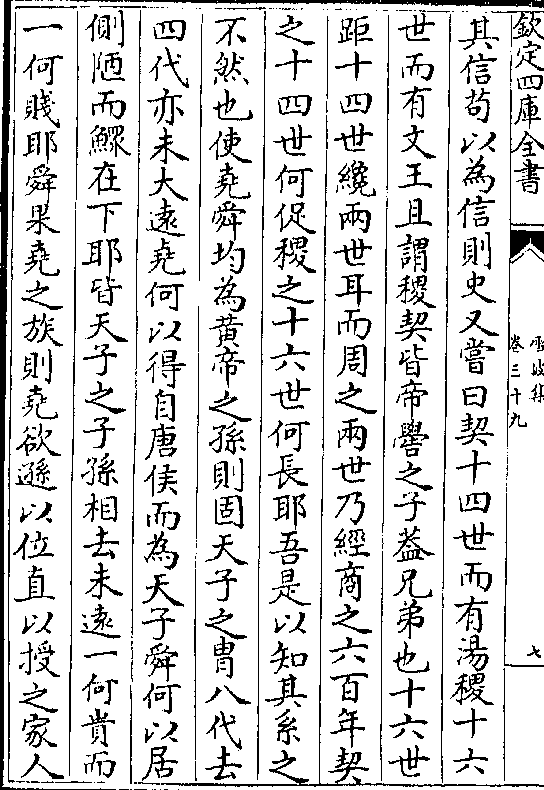 欽定四庫全書
卷三十九
七
其信苟以為信則史又嘗曰契十四世而有湯稷十六
世而有文王且謂稷契皆帝嚳之子葢兄弟也十六世
距十四世纔兩世耳而周之兩世乃經商之六百年契
之十四世何促稷之十六世何長耶吾是以知其系之
不然也使堯舜均為黃帝之孫則固天子之冑八代去
四代亦未大遠堯何以得自唐侯而為天子舜何以居
側陋而鰥在下耶皆天子之子孫相去未遠一何貴而
一何賤耶舜果堯之族則堯欲遜以位直以授之家人